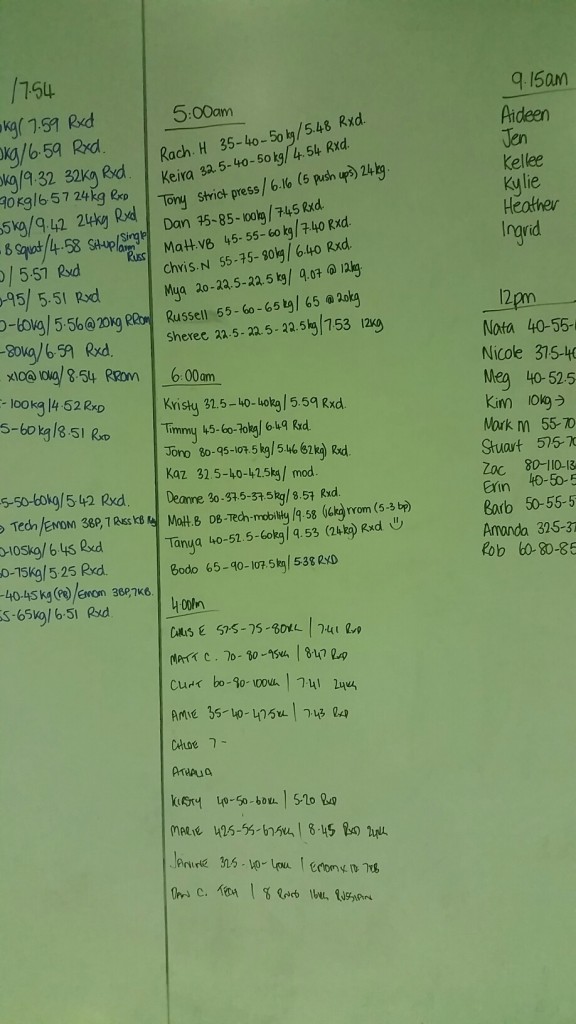 /7.54
kg/ 7.59 Rxd
kg/6.59 Rxd.
kg/9.32 32kg Rxd.
90kg/6.57 24kg Rxd
5kg/9.42 24kg Rxd
B Squat/4.58 Situp/Single arm Russ
/ 5.57 Rxd
-95/ 5.51 Rxd
0-60kg/5.56@20kg RRom
-80kg/6.59 Rxd.
x10@10kg/8.54 RRom
-100kg/4.52 Rxd
5-60kg/8.51 Rxd
5-50-60kg/5.42 Rxd.
Tech/Emom 3BP, 7 Russ KB
0-105kg/6.45 Rxd
0-75kg/5.25 Rxd.
-40-45kg(PB)/Emom 3BP, 7KB.
55-65kg/6.51 Rxd.
5:00am
Rach.H 35-40-50kg/5.48 Rxd.
Keira 32.5-40-50kg/4.54 Rxd.
Tony Strict press/6.16 (5 push ups) 24kg.
Dan 75-85-100kg/7.45 Rxd.
Matt.VB 45-55-60kg/7.40 Rxd.
Chris.N 55-75-80kg/6.40 Rxd.
Mya 20-22.5-22.5kg/ 9.07 @ 12kg.
Russell 55-60-65kg/ 65 @ 20kg
Sheree 22.5-22.5-22.5kg/7.53 12kg
6:00am
Kristy 32.5-40-40kg/5.59 Rxd.
Timmy 45-60-70kg/6.49 Rxd.
Jono 80-95-107.5kg/5.46 (32kg) Rxd.
Kaz 32.5-40-42.5kg/ mod.
Deanne 30-37.5-37.5kg/8.57 Rxd.
Matt.B DB-Tech-mobility/9.58 (16kg) rrom (5-3bp)
Tanya 40-52.5-60kg/9.53 (24kg) Rxd
Bodo 65-90-107.5kg/5.38 RXD
4:00pm
CHRIS E 57.5-75-80KG | 7.41 RXD
MATT C. 70-80-95KG | 8.47 RXD
CLINT 60-80-100KG | 7.41 24KG
AMIE 35-40-47.5KG | 7.43 RXD
CHLOE 7-
ATHALIA
KIRSTY 40-50-60KG | 5.20 RXD
MARIE 42.5-55-67.5KG | 8.45 RXD 24KG
JANINE 32.5-40-40KG | EMOM 7KB
DAN C. TECH | 8 RNDS 16KG RUSSIAN
9.15am
Aideen
Jen
Kellee
Kylie
Heather
Ingrid
12pm
Nata 40-55-
Nicole 37.5-40
Meg 40-52.5
Kim 10kg →
Mark M 55-70
Stuart 57.5-70
Zac 80-110-13
Erin 40-50-5
Barb 50-55-5
Amanda 32.5-37
Rob 60-80-85